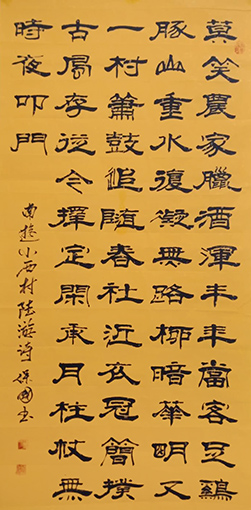 莫笑農家臘酒渾丰年留客足鷄
豚山重水復疑無路柳暗華明又
一村簫鼓追隨春社近衣冠簡樸
古風存從今擇定閑乘月柱杖無
時夜叩門
遊山西村陸游詩保國书